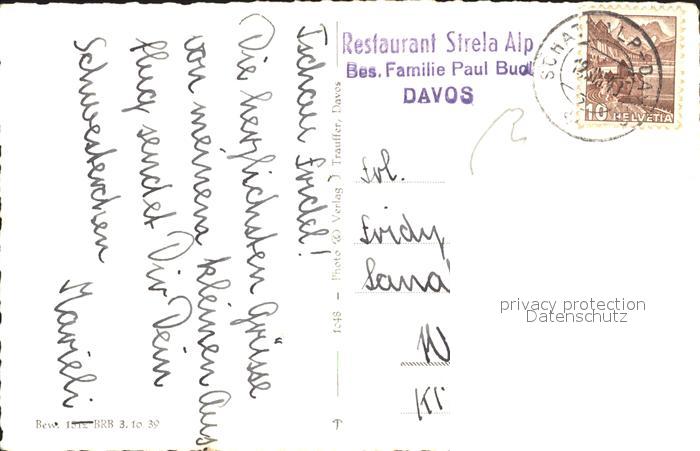 Tschau Fridel!
Die herzlichsten Grüsse
von meinem kleinen Aus-
flug sendet Dir Dein
Schwesterchen
Marieli!
Restaurant Strela Alp
Bes. Familie Paul Bud
DAVOS
SCHATZALP-DAV
10 HELVETIA
Frl.
Fridy
Sana
W
Kt
privacy protection
Datenschutz
1048 – Photo & Verlag J Trauffer, Davos
Bew. 1512 BRB 3. 10 39